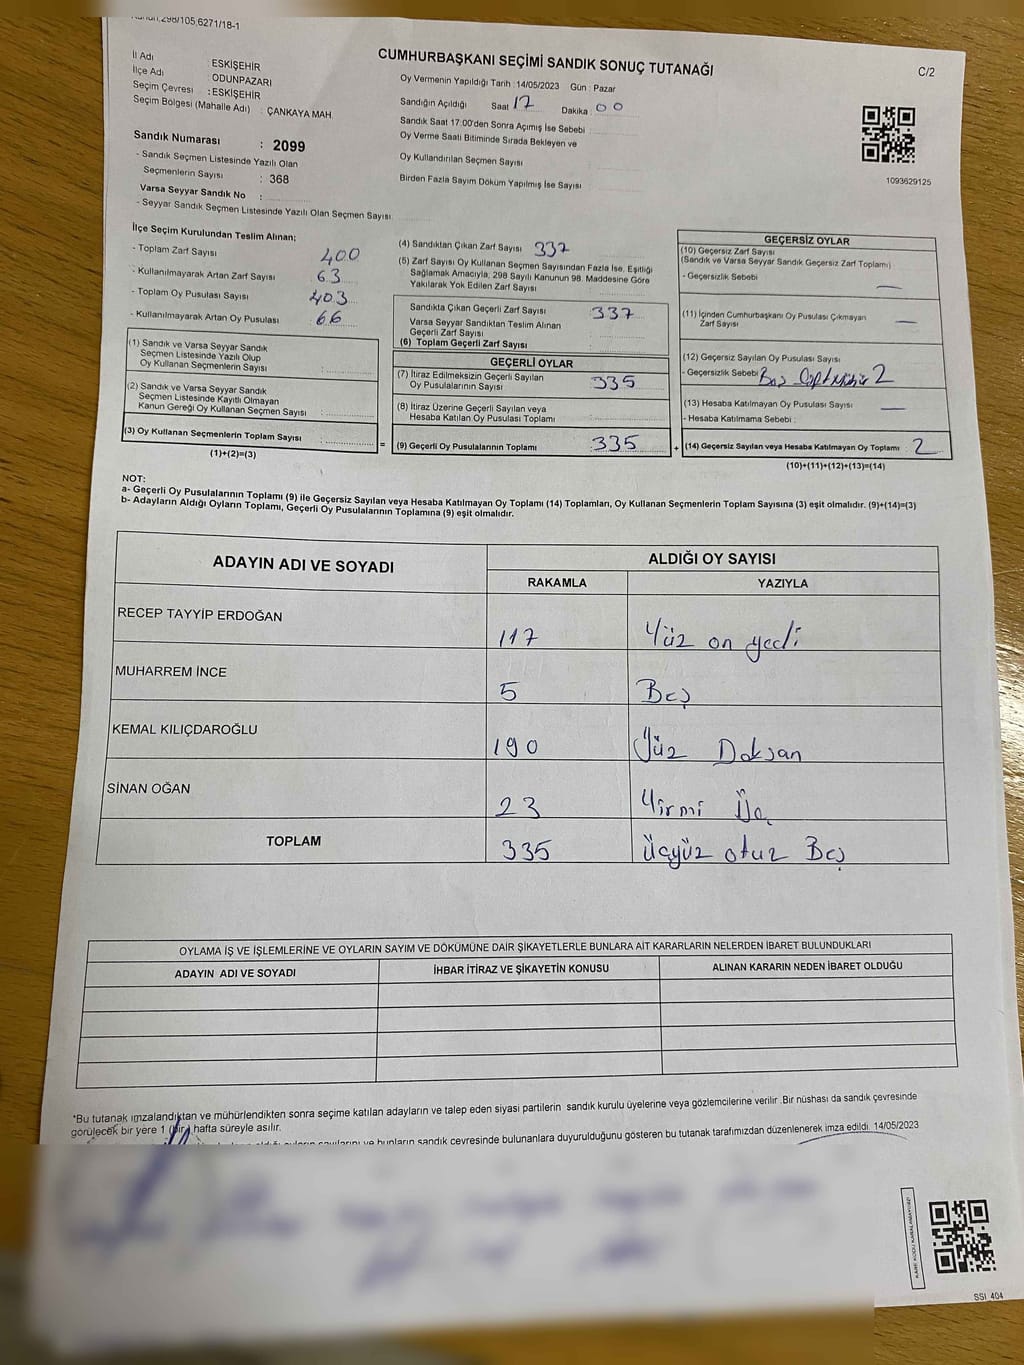 Kanun,298/105,6271/18-1
CUMHURBAŞKANI SEÇİMİ SANDIK SONUÇ TUTANAĞI
C/2
İl Adı : ESKİŞEHİR
İlçe Adı : ODUNPAZARI
Seçim Çevresi : ESKİŞEHİR
Seçim Bölgesi (Mahalle Adı) : ÇANKAYA MAH.
Oy Vermenin Yapıldığı Tarih : 14/05/2023 Gün : Pazar
Sandığın Açıldığı Saat 17 Dakika 00
Sandık Saat 17:00'den Sonra Açımış İse Sebebi
Oy Verme Saati Bitiminde Sırada Bekleyen ve
Oy Kullandırılan Seçmen Sayısı
Birden Fazla Sayım Döküm Yapılmış İse Sayısı
1093629125
Sandık Numarası : 2099
- Sandık Seçmen Listesinde Yazılı Olan
Seçmenlerin Sayısı : 368
Varsa Seyyar Sandık No :
- Seyyar Sandık Seçmen Listesinde Yazılı Olan Seçmen Sayısı
İlçe Seçim Kurulundan Teslim Alınan;
- Toplam Zarf Sayısı 400
- Kullanılmayarak Artan Zarf Sayısı 63
- Toplam Oy Pusulası Sayısı 403
- Kullanılmayarak Artan Oy Pusulası 66
(1) Sandık ve Varsa Seyyar Sandık
Seçmen Listesinde Yazılı Olup
Oy Kullanan Seçmenlerin Sayısı :
(2) Sandık ve Varsa Seyyar Sandık
Seçmen Listesinde Kayıtlı Olmayan
Kanun Gereği Oy Kullanan Seçmen Sayısı :
(3) Oy Kullanan Seçmenlerin Toplam Sayısı :
(1)+(2)=(3)
=
(4) Sandıktan Çıkan Zarf Sayısı 337
(5) Zarf Sayısı Oy Kullanan Seçmen Sayısından Fazla İse, Eşitliği
Sağlamak Amacıyla, 298 Sayılı Kanunun 98. Maddesine Göre
Yakılarak Yok Edilen Zarf Sayısı
Sandıkta Çıkan Geçerli Zarf Sayısı : 337
Varsa Seyyar Sandıktan Teslim Alınan
Geçerli Zarf Sayısı :
(6) Toplam Geçerli Zarf Sayısı :
GEÇERLİ OYLAR
(7) İtiraz Edilmeksizin Geçerli Sayılan
Oy Pusulalarının Sayısı : 335
(8) İtiraz Üzerine Geçerli Sayılan veya
Hesaba Katılan Oy Pusulası Toplamı :
(9) Geçerli Oy Pusulalarının Toplamı : 335
+
GEÇERSİZ OYLAR
(10) Geçersiz Zarf Sayısı
(Sandık ve Varsa Seyyar Sandık Geçersiz Zarf Toplamı)
- Geçersizlik Sebebi —
(11) İçinden Cumhurbaşkanı Oy Pusulası Çıkmayan
Zarf Sayısı : —
(12) Geçersiz Sayılan Oy Pusulası Sayısı :
- Geçersizlik Sebebi : Boş 2
(13) Hesaba Katılmayan Oy Pusulası Sayısı : —
- Hesaba Katılmama Sebebi :
(14) Geçersiz Sayılan veya Hesaba Katılmayan Oy Toplamı : 2
(10)+(11)+(12)+(13)=(14)
NOT:
a- Geçerli Oy Pusulalarının Toplamı (9) ile Geçersiz Sayılan veya Hesaba Katılmayan Oy Toplamı (14) Toplamları, Oy Kullanan Seçmenlerin Toplam Sayısına (3) eşit olmalıdır. (9)+(14)=(3)
b- Adayların Aldığı Oyların Toplamı, Geçerli Oy Pusulalarının Toplamına (9) eşit olmalıdır.
ADAYIN ADI VE SOYADI ALDIĞI OY SAYISI
RAKAMLA YAZIYLA
RECEP TAYYİP ERDOĞAN 117 Yüz on yedi
MUHARREM İNCE 5 Beş
KEMAL KILIÇDAROĞLU 190 Yüz Doksan
SİNAN OĞAN 23 Yirmi Üç
TOPLAM 335 Üçyüz otuz Beş
OYLAMA İŞ VE İŞLEMLERİNE VE OYLARIN SAYIM VE DÖKÜMÜNE DAİR ŞİKAYETLERLE BUNLARA AİT KARARLARIN NELERDEN İBARET BULUNDUKLARI
ADAYIN ADI VE SOYADI İHBAR İTİRAZ VE ŞİKAYETİN KONUSU ALINAN KARARIN NEDEN İBARET OLDUĞU
*Bu tutanak imzalandıktan ve mühürlendikten sonra seçime katılan adayların ve talep eden siyasi partilerin sandık kurulu üyelerine veya gözlemcilerine verilir .Bir nüshası da sandık çevresinde
görülecek bir yere 1 (bir) hafta süreyle asılır.
ve bunların sandık çevresinde bulunanlara duyurulduğunu gösteren bu tutanak tarafımızdan düzenlenerek imza edildi. 14/05/2023
SSI 404